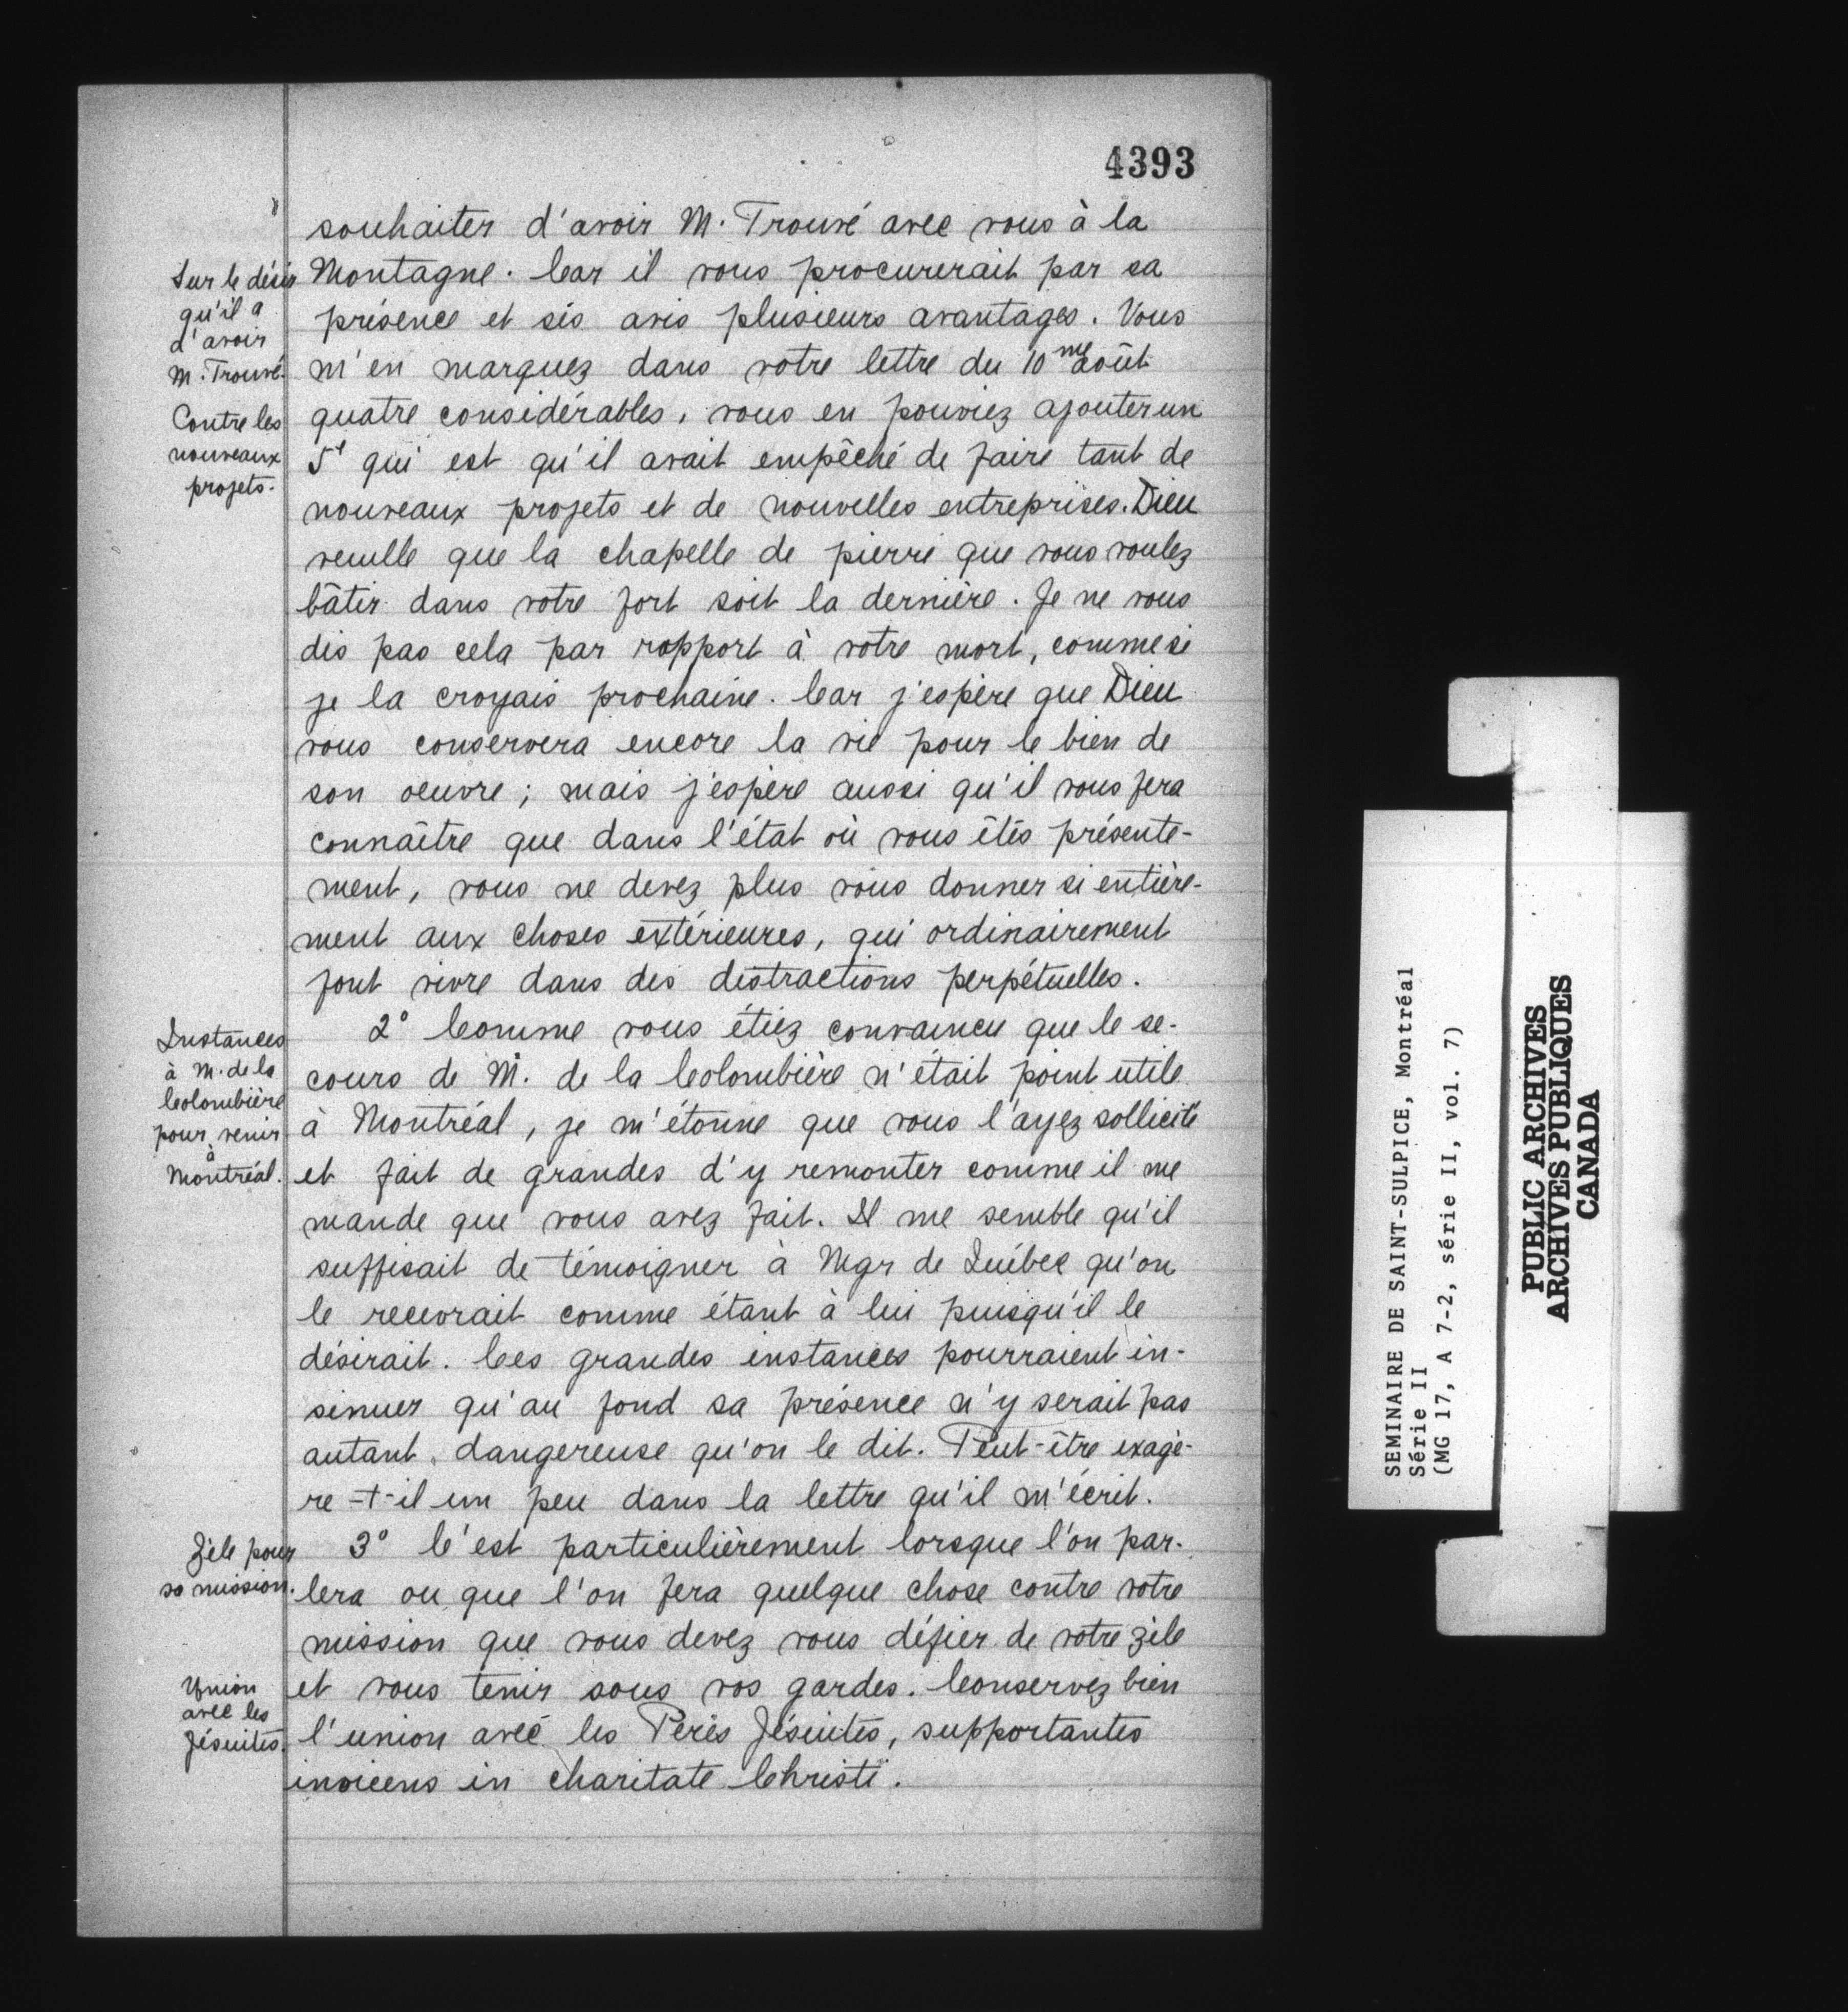 4393
souhaiter d'avoir M. Trouvé avec vous à la
Sur le désir
qu'il a
d'avoir
M. Trouvé.
Montagne. Car il vous procurerait par sa
présence et ses avis plusieurs avantages. Vous
m'en marquez dans votre lettre du 10me août
Contre les
nouveaux
projets.
quatre considérables, vous en pouviez ajouter un
5e qui est qu'il avait empêché de faire tant de
nouveaux projets et de nouvelles entreprises. Dieu
veuille que la chapelle de pierre que vous voulez
bâtir dans votre fort soit la dernière. Je ne vous
dis pas cela par rapport à votre mort, comme si
je la croyais prochaine. Car j'espère que Dieu
vous conservera encore la vie pour le bien de
son oeuvre ; mais j'espère aussi qu'il vous fera
connaître que dans l'état où vous êtes présente-
ment, vous ne devez plus vous donner si entière-
ment aux choses extérieures, qui ordinairement
font vivre dans des distractions perpétuelles.
Instances
à M. de la
Colombière
pour venir
à
Montréal.
2° Comme vous étiez convaincu que le se-
cours de M. de la Colombière n'était point utile
à Montréal, je m'étonne que vous l'ayez sollicité
et fait de grandes d'y remonter comme il me
mande que vous avez fait. Il me semble qu'il
suffisait de témoigner à Mgr de Québec qu'on
le recevrait comme étant à lui puisqu'il le
désirait. Ces grandes instances pourraient in-
sinuer qu'au fond sa présence n'y serait pas
autant dangereuse qu'on le dit. Peut-être exagè-
re-t-il un peu dans la lettre qu'il m'écrit.
Zèle pour
sa mission.
3° C'est particulièrement lorsque l'on par-
lera ou que l'on fera quelque chose contre votre
mission que vous devez vous défier de votre zèle
Union
avec les
Jésuites.
et vous tenir sous vos gardes. Conservez bien
l'union avec les Pères Jésuites, supportantes
invicens in charitate Christi.
SEMINAIRE DE SAINT-SULPICE, Montréal
Série II
(MG 17, A 7-2, série II, vol. 7)
PUBLIC ARCHIVES
ARCHIVES PUBLIQUES
CANADA